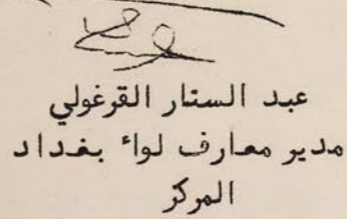 عبد الستار القرغولي
مدير معارف لواء بغداد
المركز